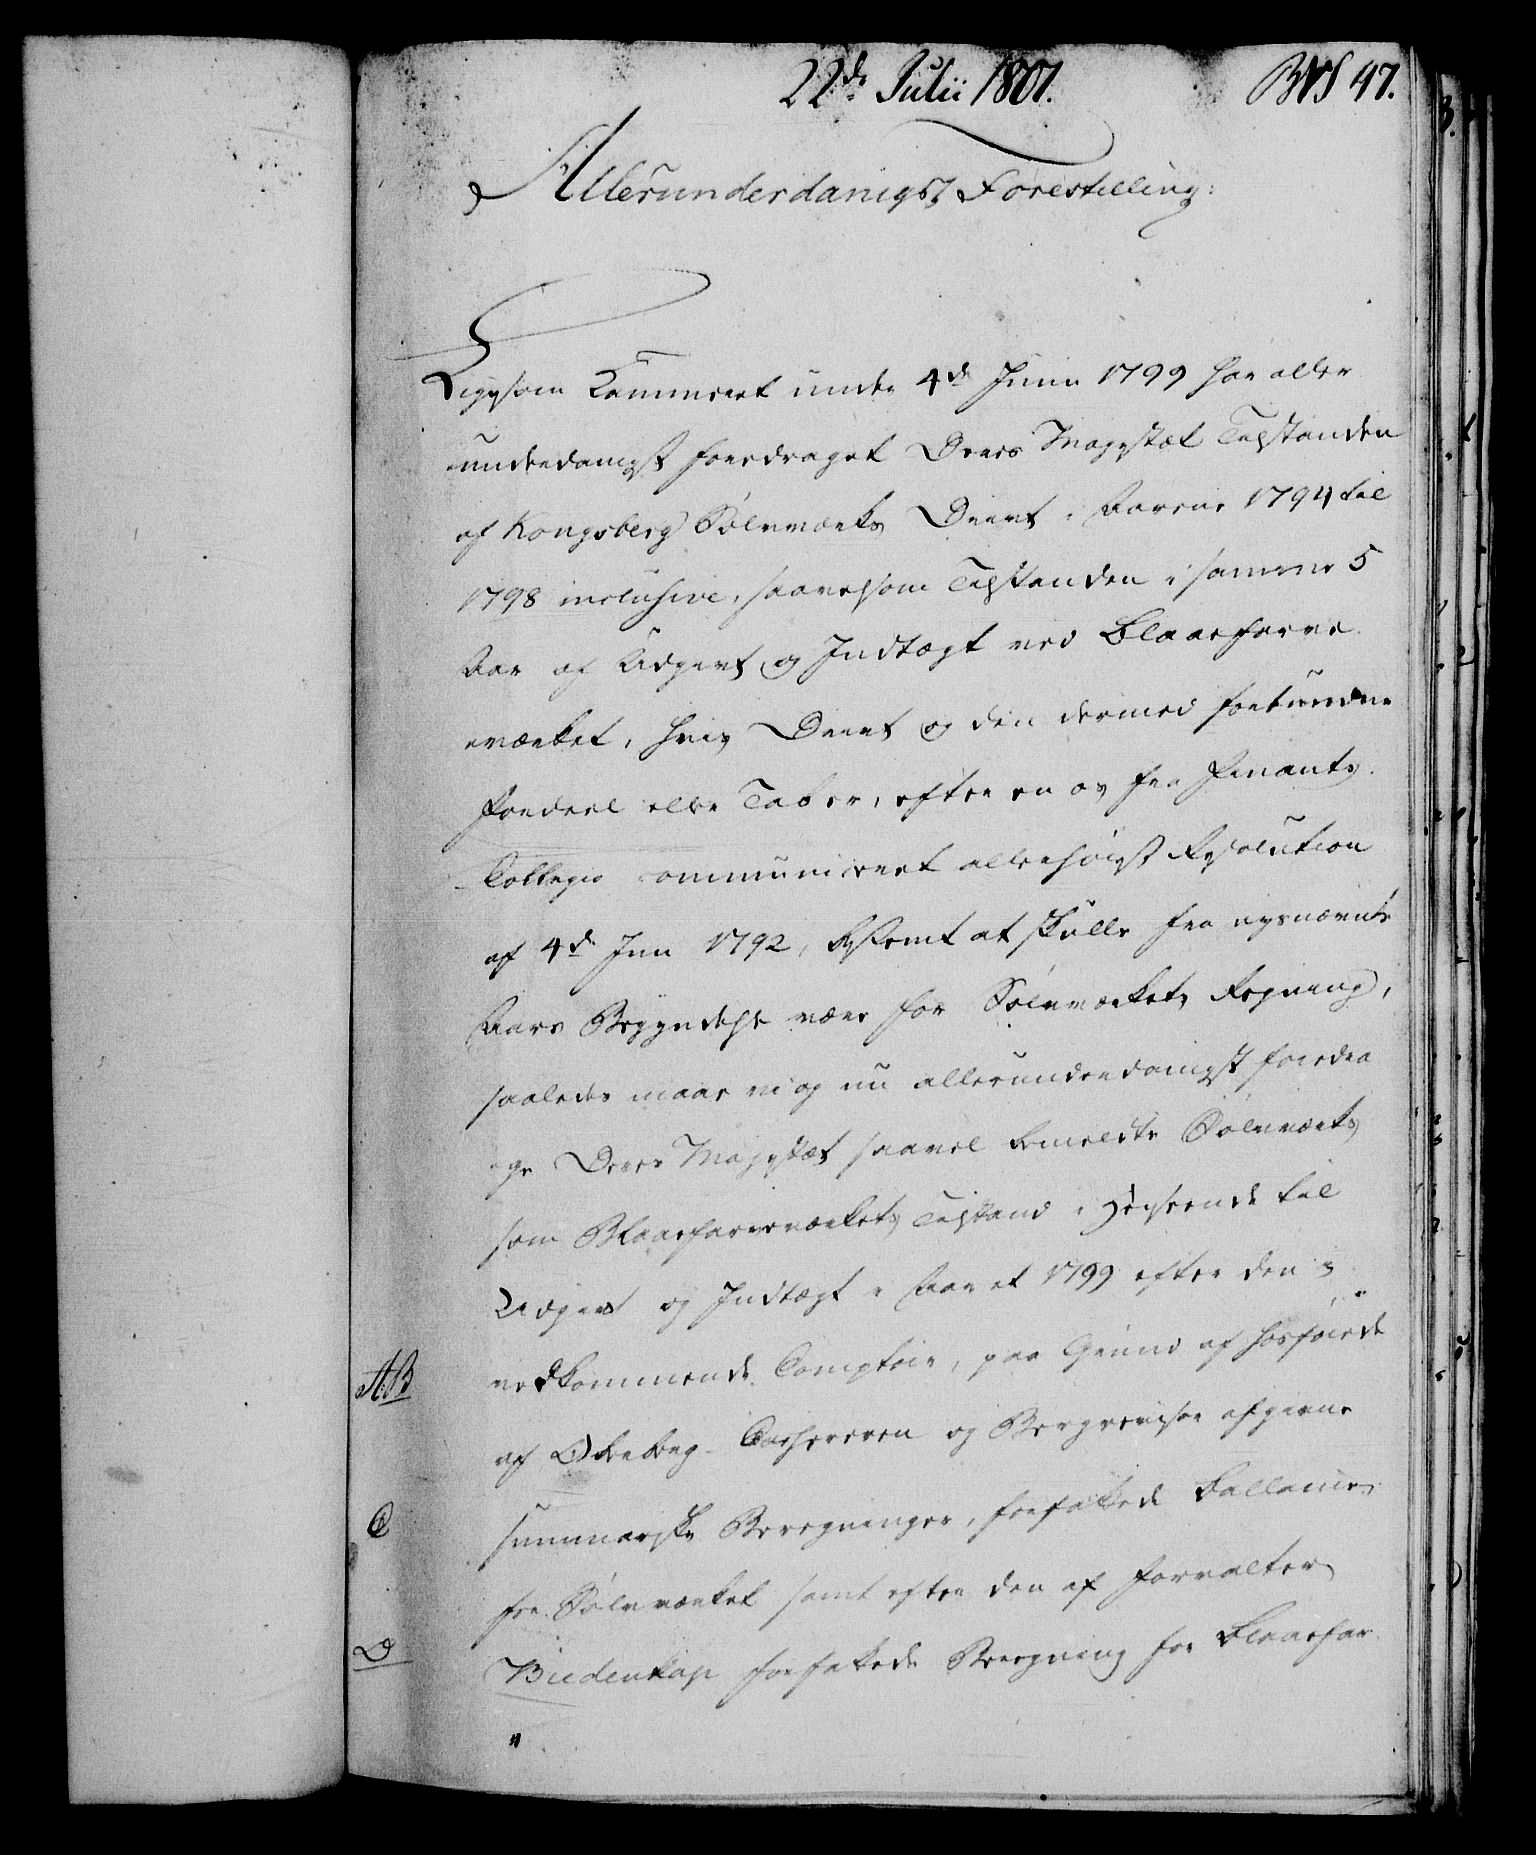 22de Julii 1801.
BVS 47.
Allerunderdanigst Forestilling:
Ligesom Kammeret under 4de Junii 1799 har aller
underdanigst foredraget Deres Majestæt Tilstanden
af Kongsberg Sølvværks Drivt i Aarene 1794 til
1798 inclusive, saavelsom Tilstanden i samme 5
Aar af Udgivt og Indtægt ved Blaaefarve
værket, hvis Drivt og den dermed forbundne
Fordeel eller Tab er, efter en os fra Finants
Collegio communiceret allerhøieste Resolution
af 4de Jun 1792, bestemt at skulle fra nysnævnte
Aars Begyndelse være for Sølvværkets Regning,
saaledes maae vi og nu allerunderdanigst foredra
ge Deres Majestæt saavel bemeldte Sølvværks
som Blaaefarveværkets Tilstand i Henseende til
Udgivt og Indtægt i Aaret 1799 efter den i
vedkommende Comptoir, paa Grund af hosføiede
A.B
af Oberberg-Casereren og Bergrevisor afgivne
summariske Beregninger, forfattede Ballance
C
for Sølvværket samt efter den af Forvalter
D
Biedenkap forfattede Beregning for Blaaefar
"